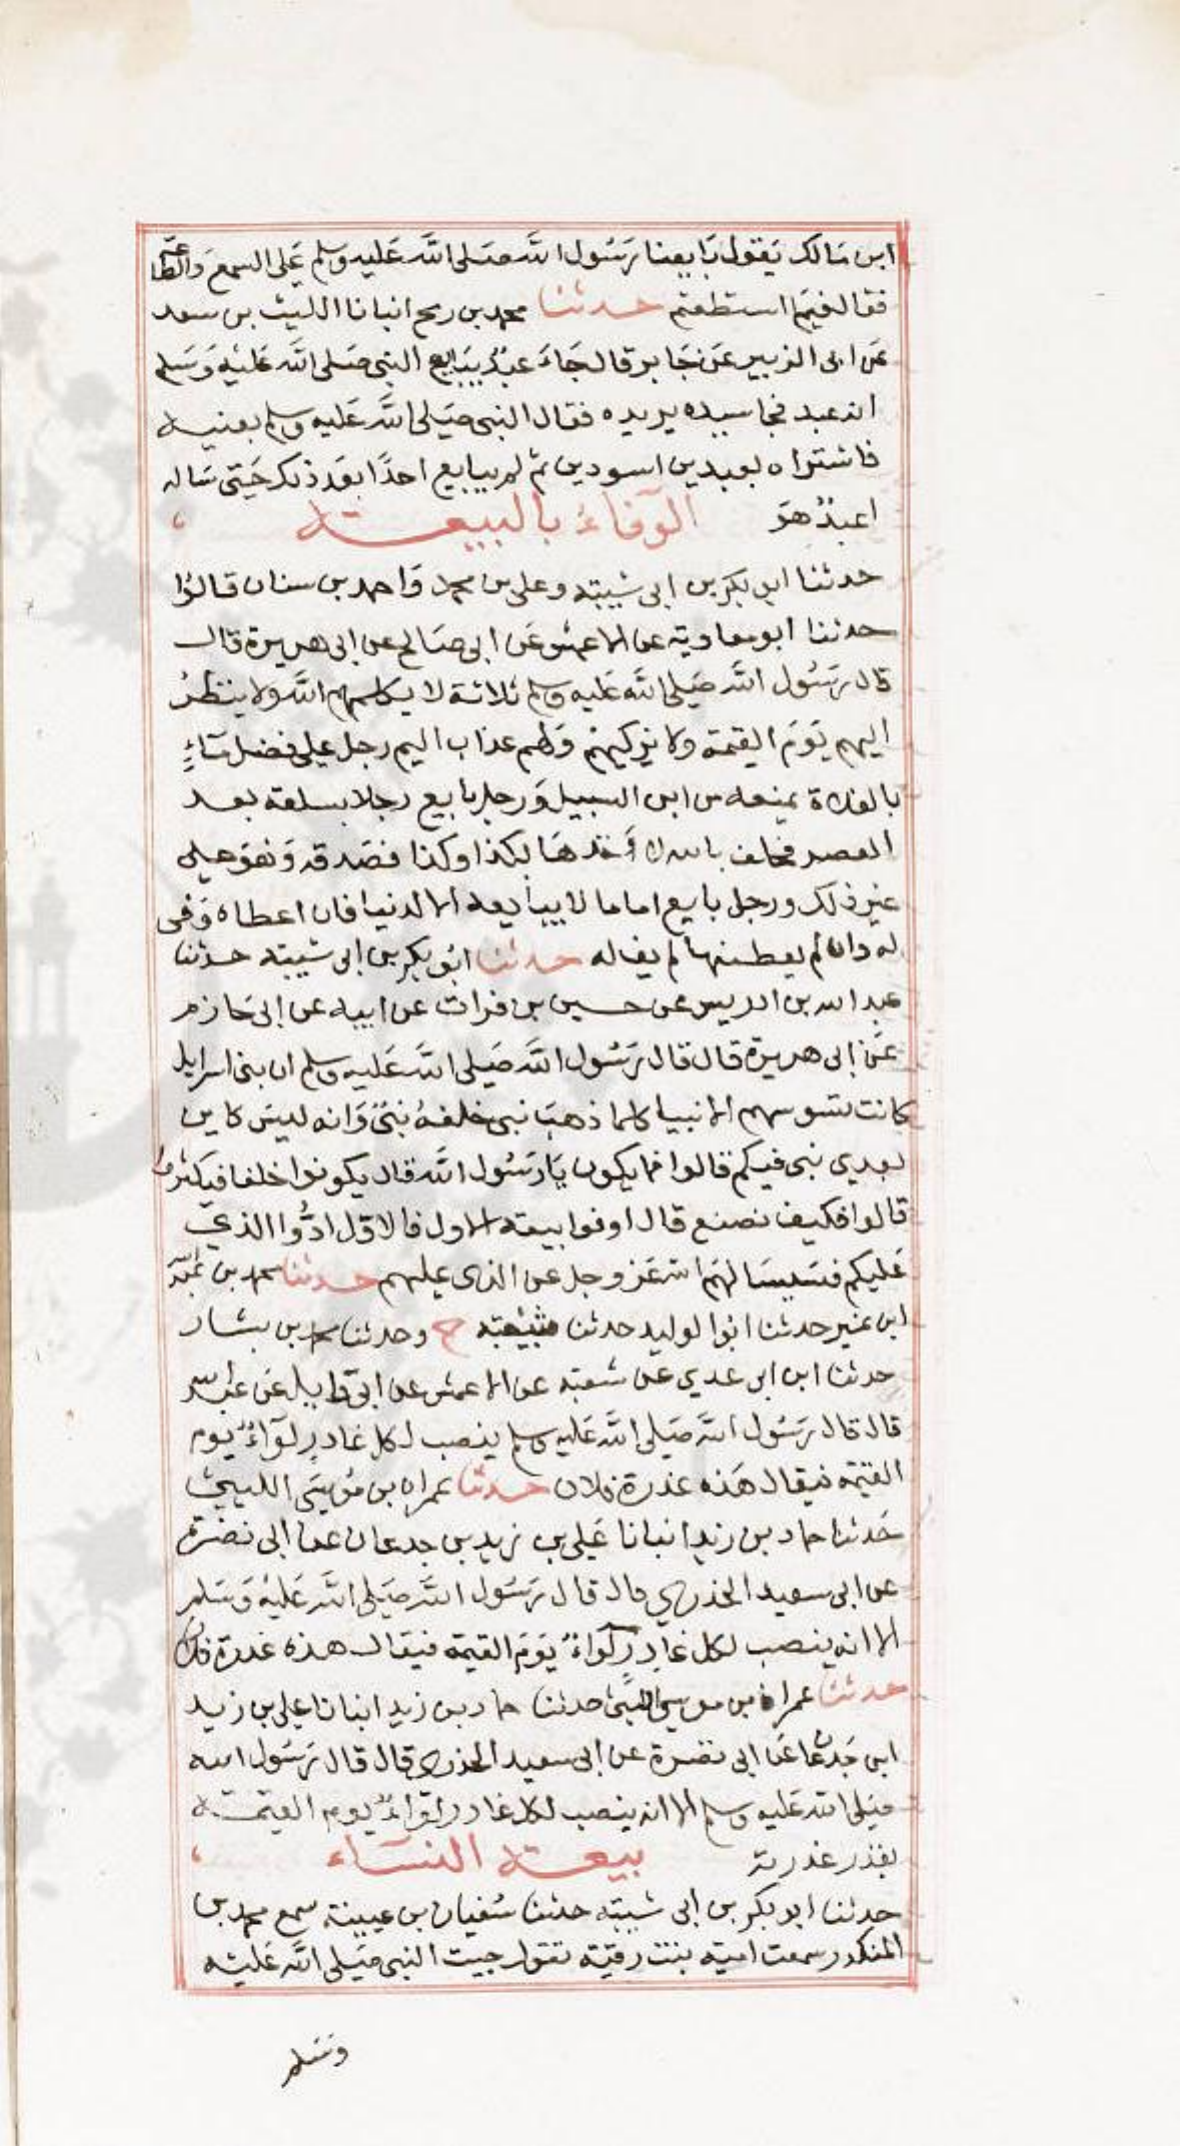 ابن مالك يقول بايعنا رسول الله صلى الله عليه وسلم على السمع والطاعة
فقال فيما استطعتم حدثنا محمد بن رمح انبانا الليث بن سعد
عن ابى الزبير عن جابر قال جاء عبد يبايع النبي صلى الله عليه وسلم
انه عبد فجا سيده يريده فقال النبي صلى الله عليه وسلم بعنيه
فاشتراه بعبدين اسودين ثم لم يبايع احدا بعد ذلك حتى ساله
اعبد هو الوفاء بالبيعة
حدثنا ابو بكر بن ابى شيبة وعلى بن محمد واحمد بن سنان قالوا
حدثنا ابو معاوية عن الاعمش عن ابى صالح عن ابى هريرة قال
قال رسول الله صلى الله عليه وسلم ثلاثة لا يكلمهم الله ولا ينظر
اليهم يوم القيمة ولا يزكيهم ولهم عذاب اليم رجل على فضل ماء
بالفلاة يمنعه من ابن السبيل ورجل بايع رجلا بسلعة بعد
العصر فحلف بالله لاخذها بكذا وكذا فصدقه وهو على
غير ذلك ورجل بايع اماما لا يبايعه الا لدنيا فان اعطاه وفى
له وان لم يعطه منها لم يف له حدثنا ابو بكر بن ابى شيبة حدثنا
عبد الله بن ادريس عن حسين بن فرات عن ابيه عن ابى حازم
عن ابى هريرة قال قال رسول الله صلى الله عليه وسلم ان بنى اسرايل
كانت تسوسهم الانبيا كلما ذهب نبى خلفه نبى وانه ليس كاين
بعدي نبى فيكم قالوا فما يكون يا رسول الله قال يكونوا خلفا فيكثروا
قالوا فكيف نصنع قال اوفوا بيعة الاول فالاول ادوا الذي
عليكم فسيسالهم الله عز وجل عن الذى عليهم حدثنا محمد بن عبد الله
ابن نمير حدثنا ابو الوليد حدثنا شعبة ح وحدثنا محمد بن بشار
حدثنا ابن ابى عدي عن شعبة عن الاعمش عن ابى وايل عن عبد الله
قال قال رسول الله صلى الله عليه وسلم ينصب لكل غادر لواء يوم
القيمة فيقال هذه غدرة فلان حدثنا عمران بن موسى الليثي
حدثنا حماد بن زيد انبانا على بن زيد بن جدعان عن ابى نضرة
عن ابى سعيد الخدري قال قال رسول الله صلى الله عليه وسلم
الا انه ينصب لكل غادر لواء يوم القيمة فيقال هذه غدرة فلان
حدثنا عمران بن موسى الليثى حدثنا حماد بن زيد انبانا على بن زيد
ابن جدعان عن ابى نضرة عن ابى سعيد الخدري قال قال رسول الله
صلى الله عليه وسلم الا انه ينصب لكل غادر لواء يوم القيمة
بقدر غدرته بيعة النساء
حدثنا ابو بكر بن ابى شيبة حدثنا سفيان بن عيينة سمع محمد بن
المنكدر سمعت اميه بنت رقيه تقول جيت النبى صلى الله عليه
وسلم